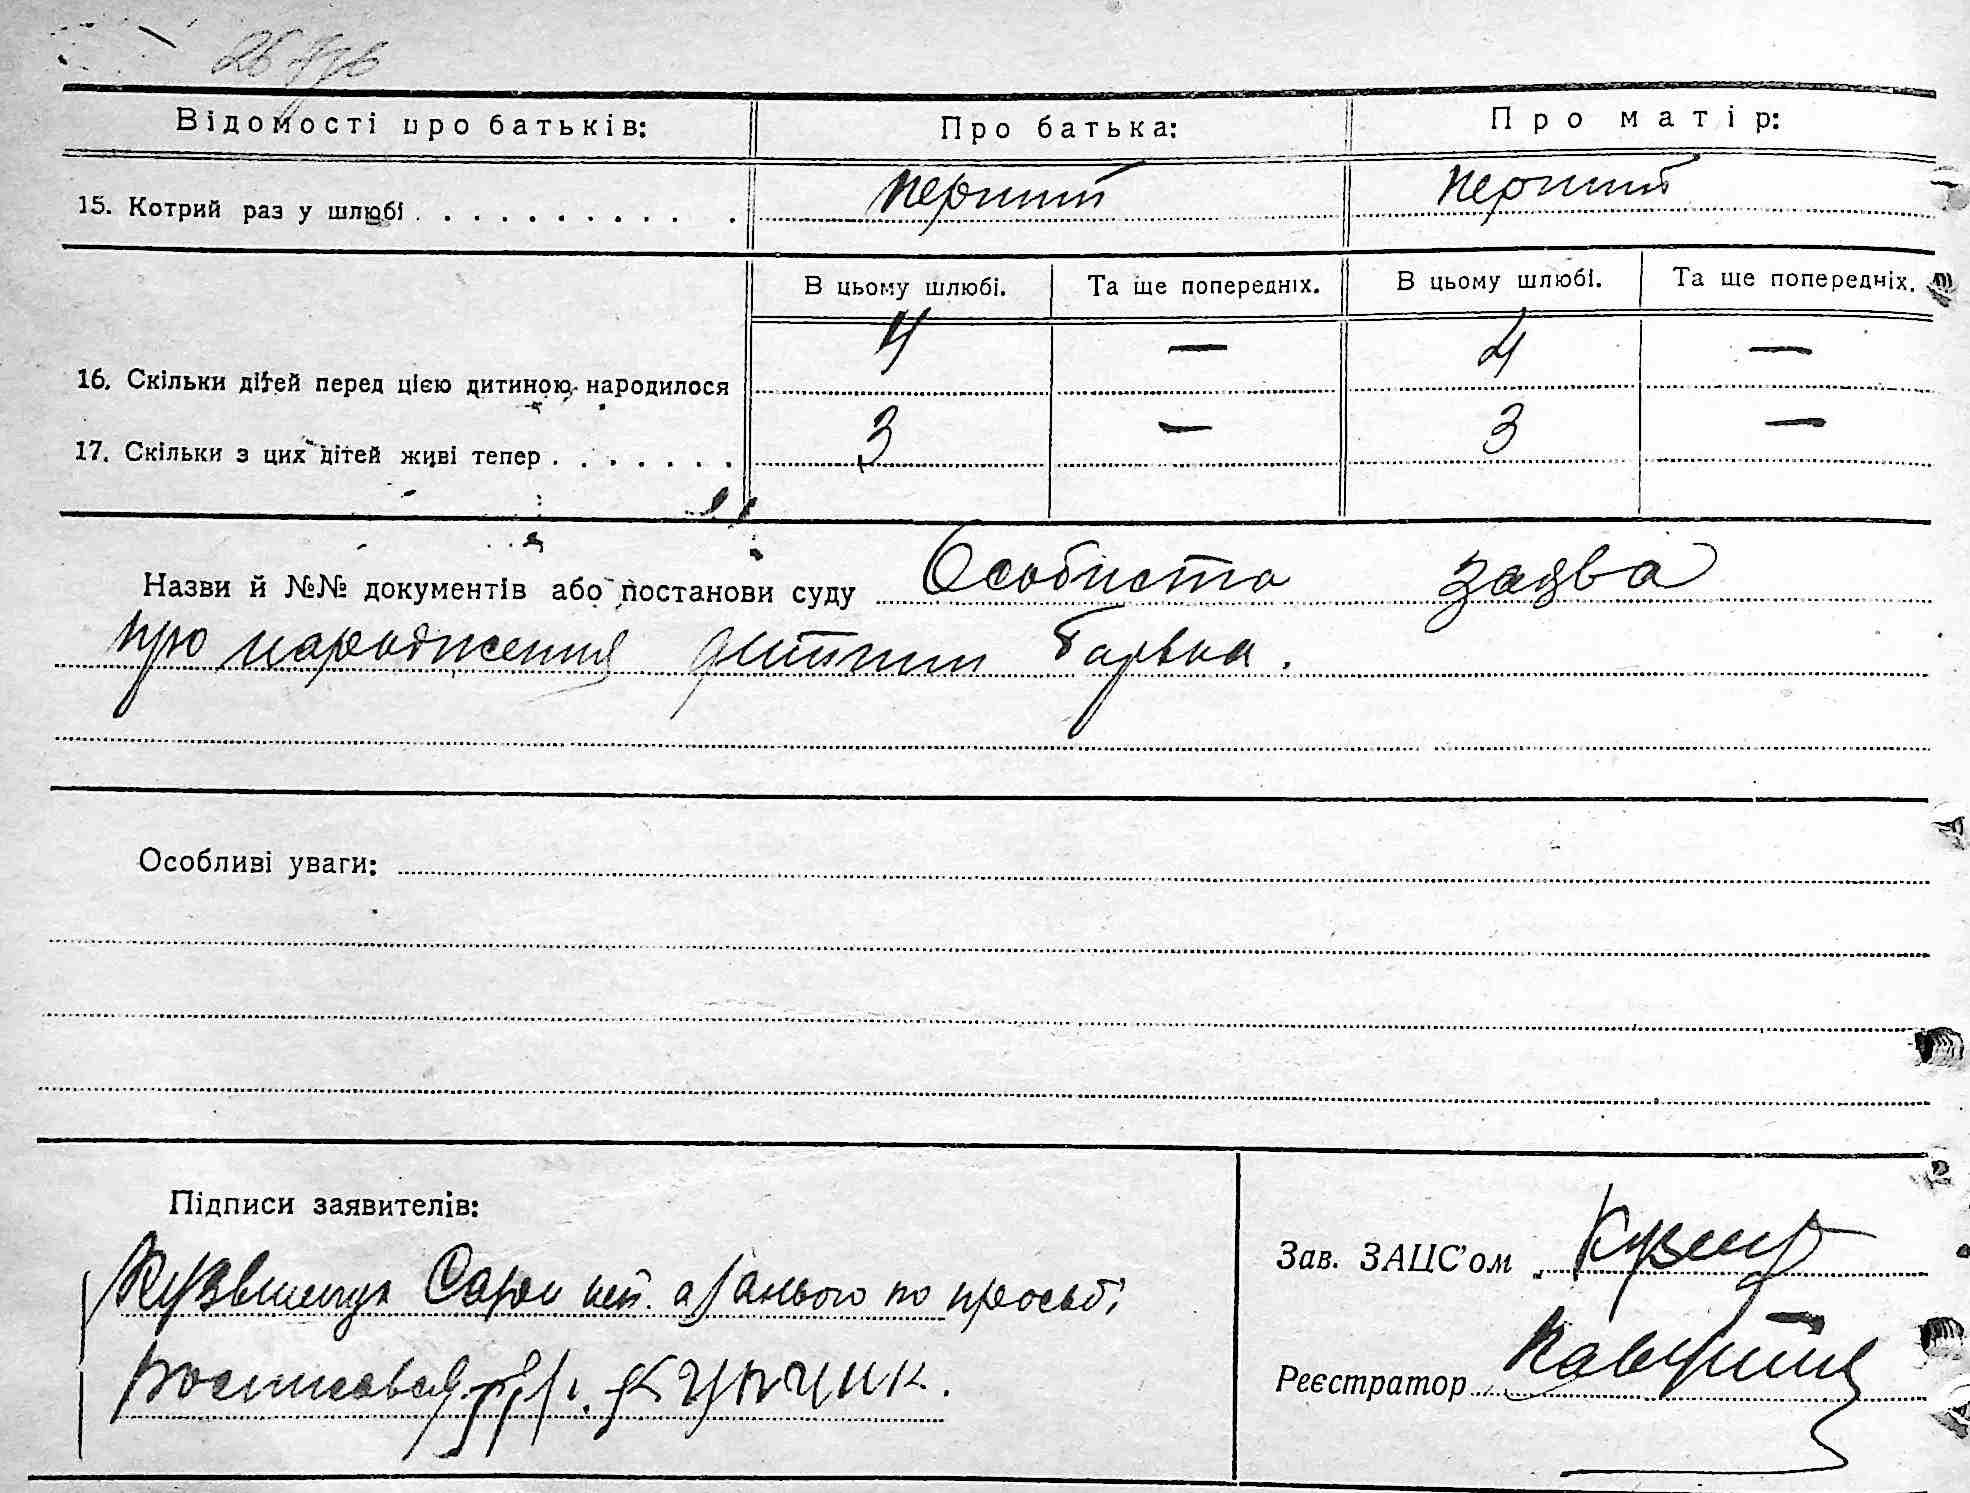 Відомості про батьків: Про батька: Про матір:
15. Котрий раз у шлюбі перший перший
В цьому шлюбі. Та ще попередніх. В цьому шлюбі. Та ще попередніх.
16. Скільки дітей перед цією дитиною народилося 4 — 4 —
17. Скільки з цих дітей живі тепер 3 — 3 —
Назви й №№ документів або постанови суду Особиста заява
про народження дитини батька.
Особливі уваги:
Підписи заявителів:
Зав. ЗАЦС'ом
по просьбі
Реєстратор
Купчик.